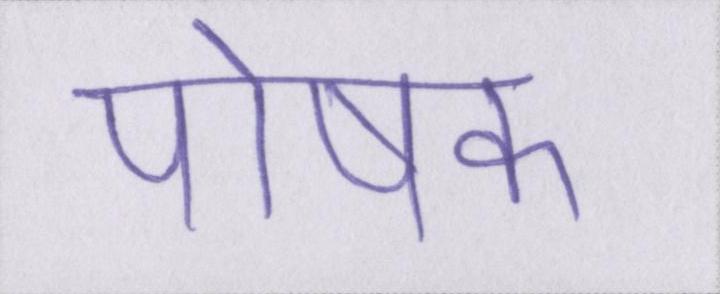 पोषक